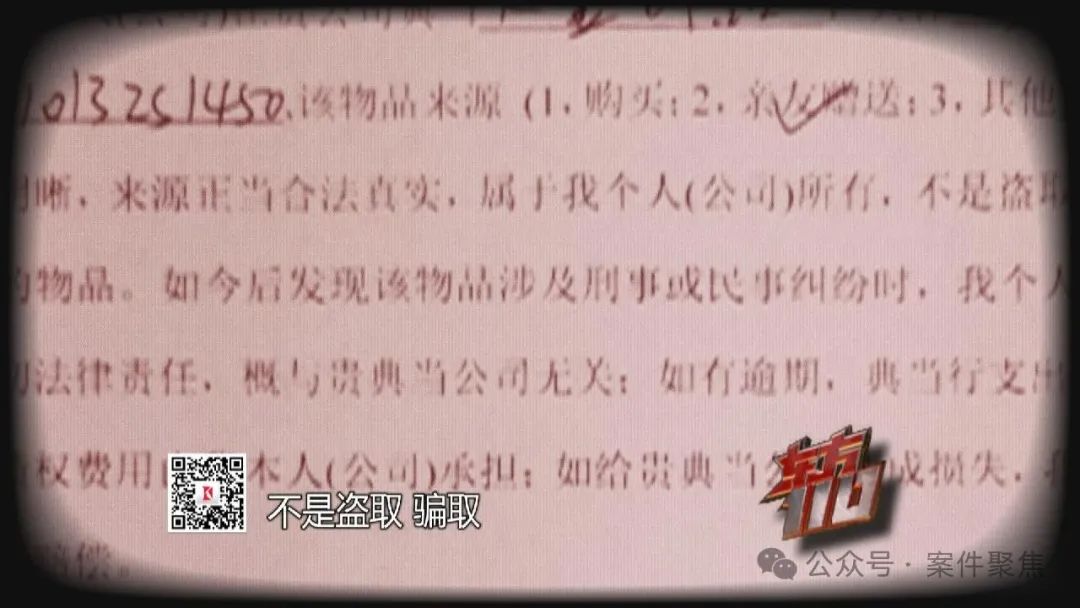 013251450.该物品来源 (1,购买;2,亲友赠送;3,其他
晰,来源正当合法真实,属于我个人(公司)所有,不是盗取
的物品。如今后发现该物品涉及刑事或民事纠纷时,我个人
法律责任,概与贵典当公司无关;如有逾期,典当行支出
权费用 本人(公司)承担;如给贵典当 成损失,我
赔偿。
不是盗取 骗取
东方110
公众号·案件聚焦